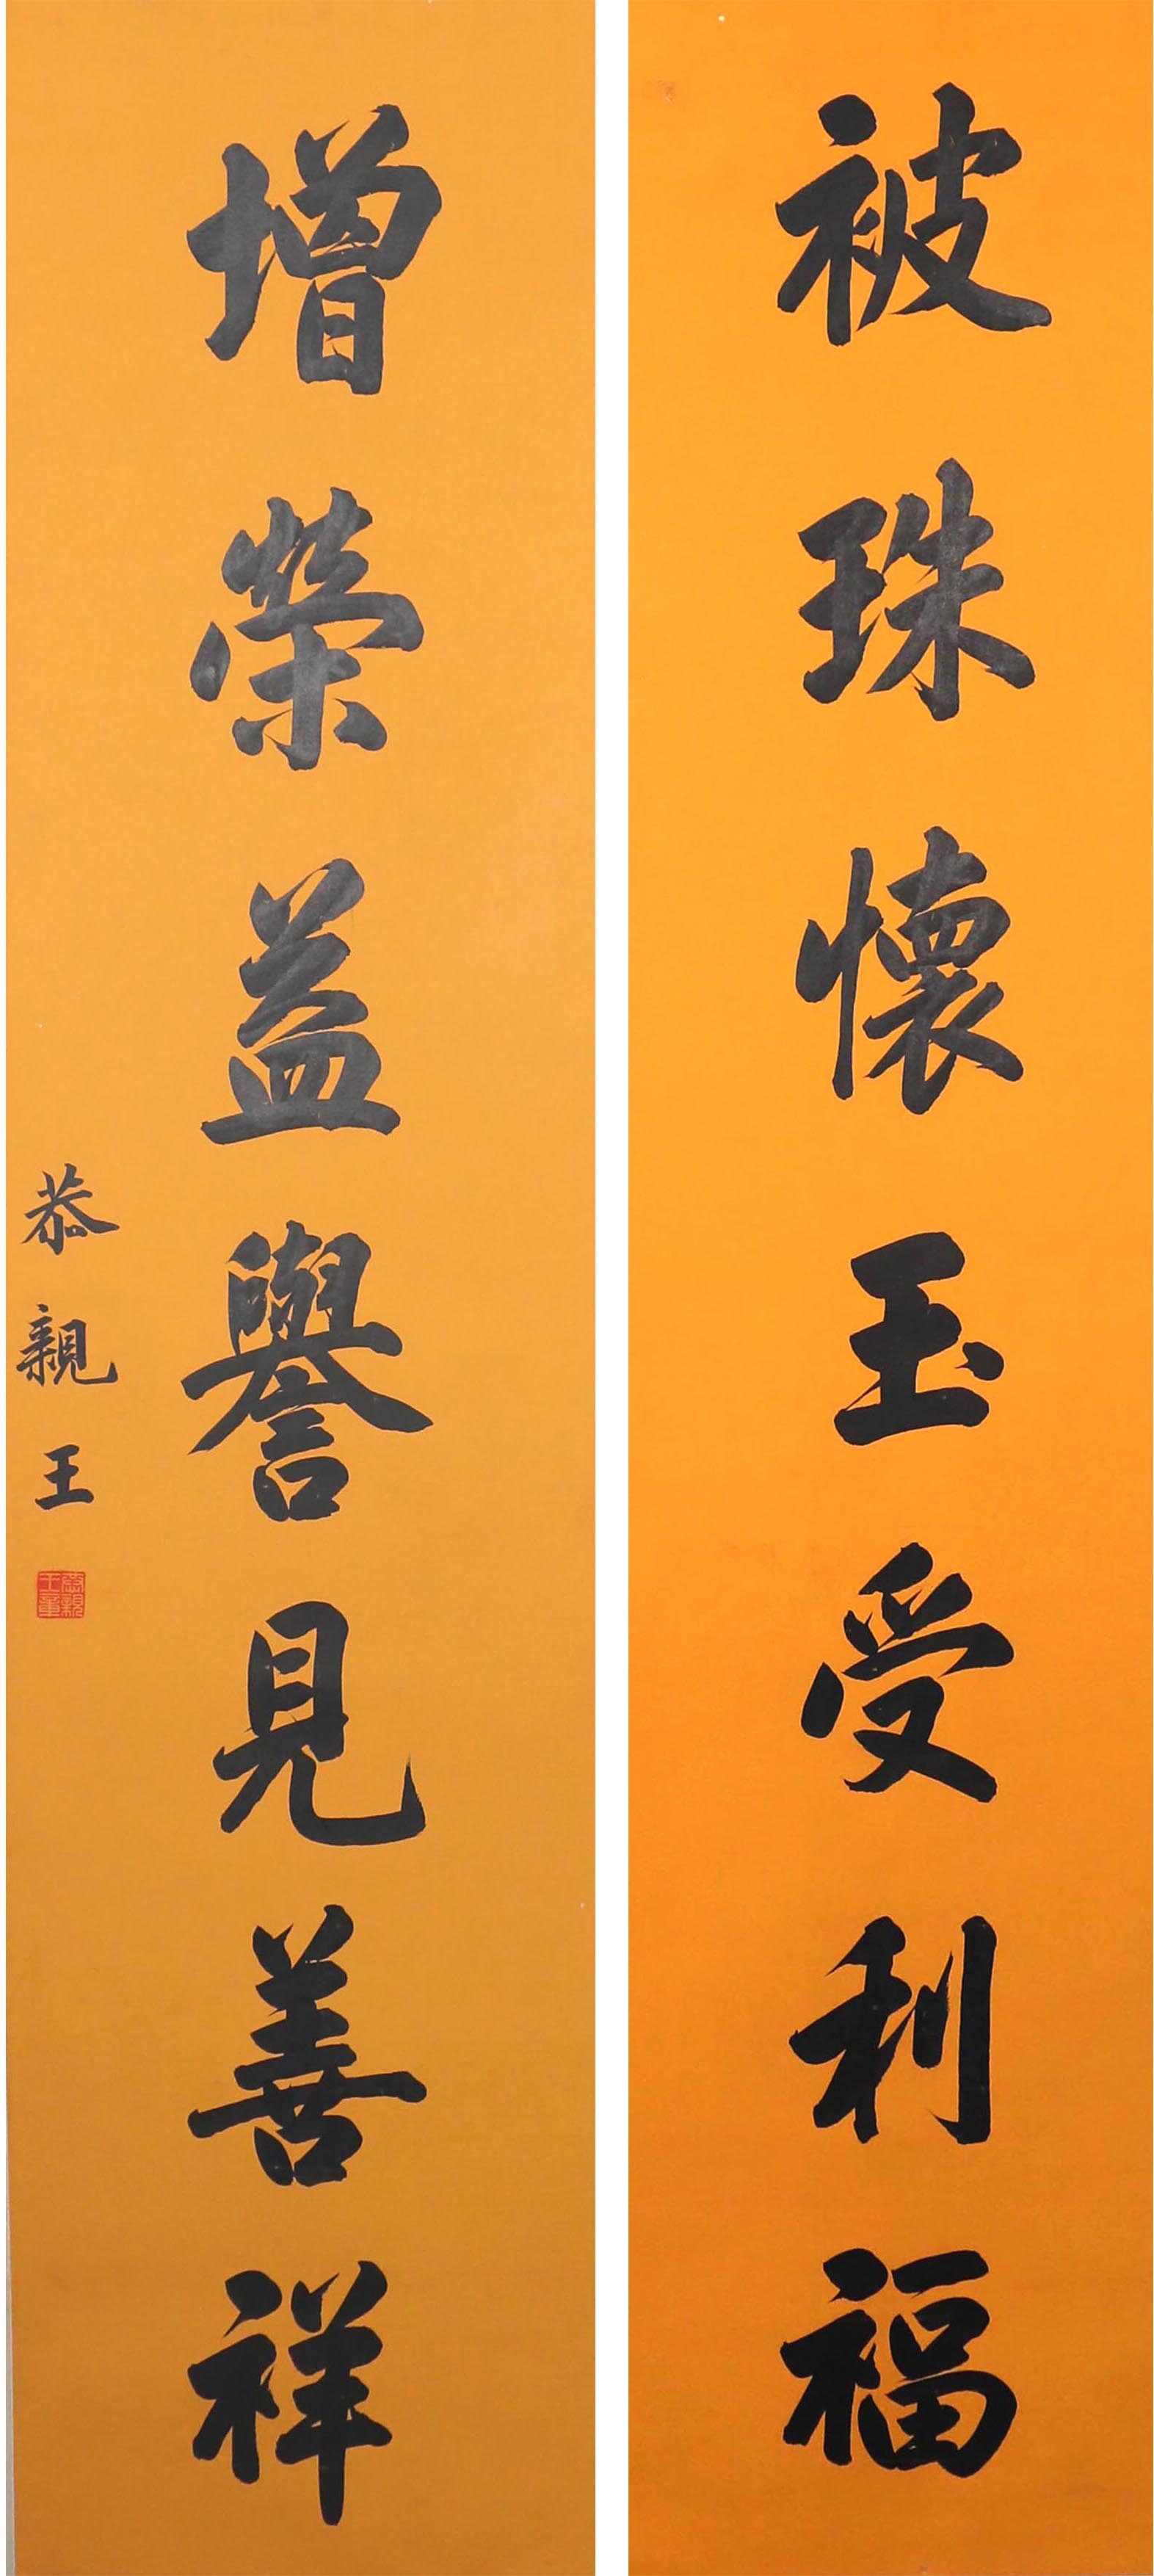 被珠懷玉受利福
增榮益譽見善祥
恭親王
恭親王章